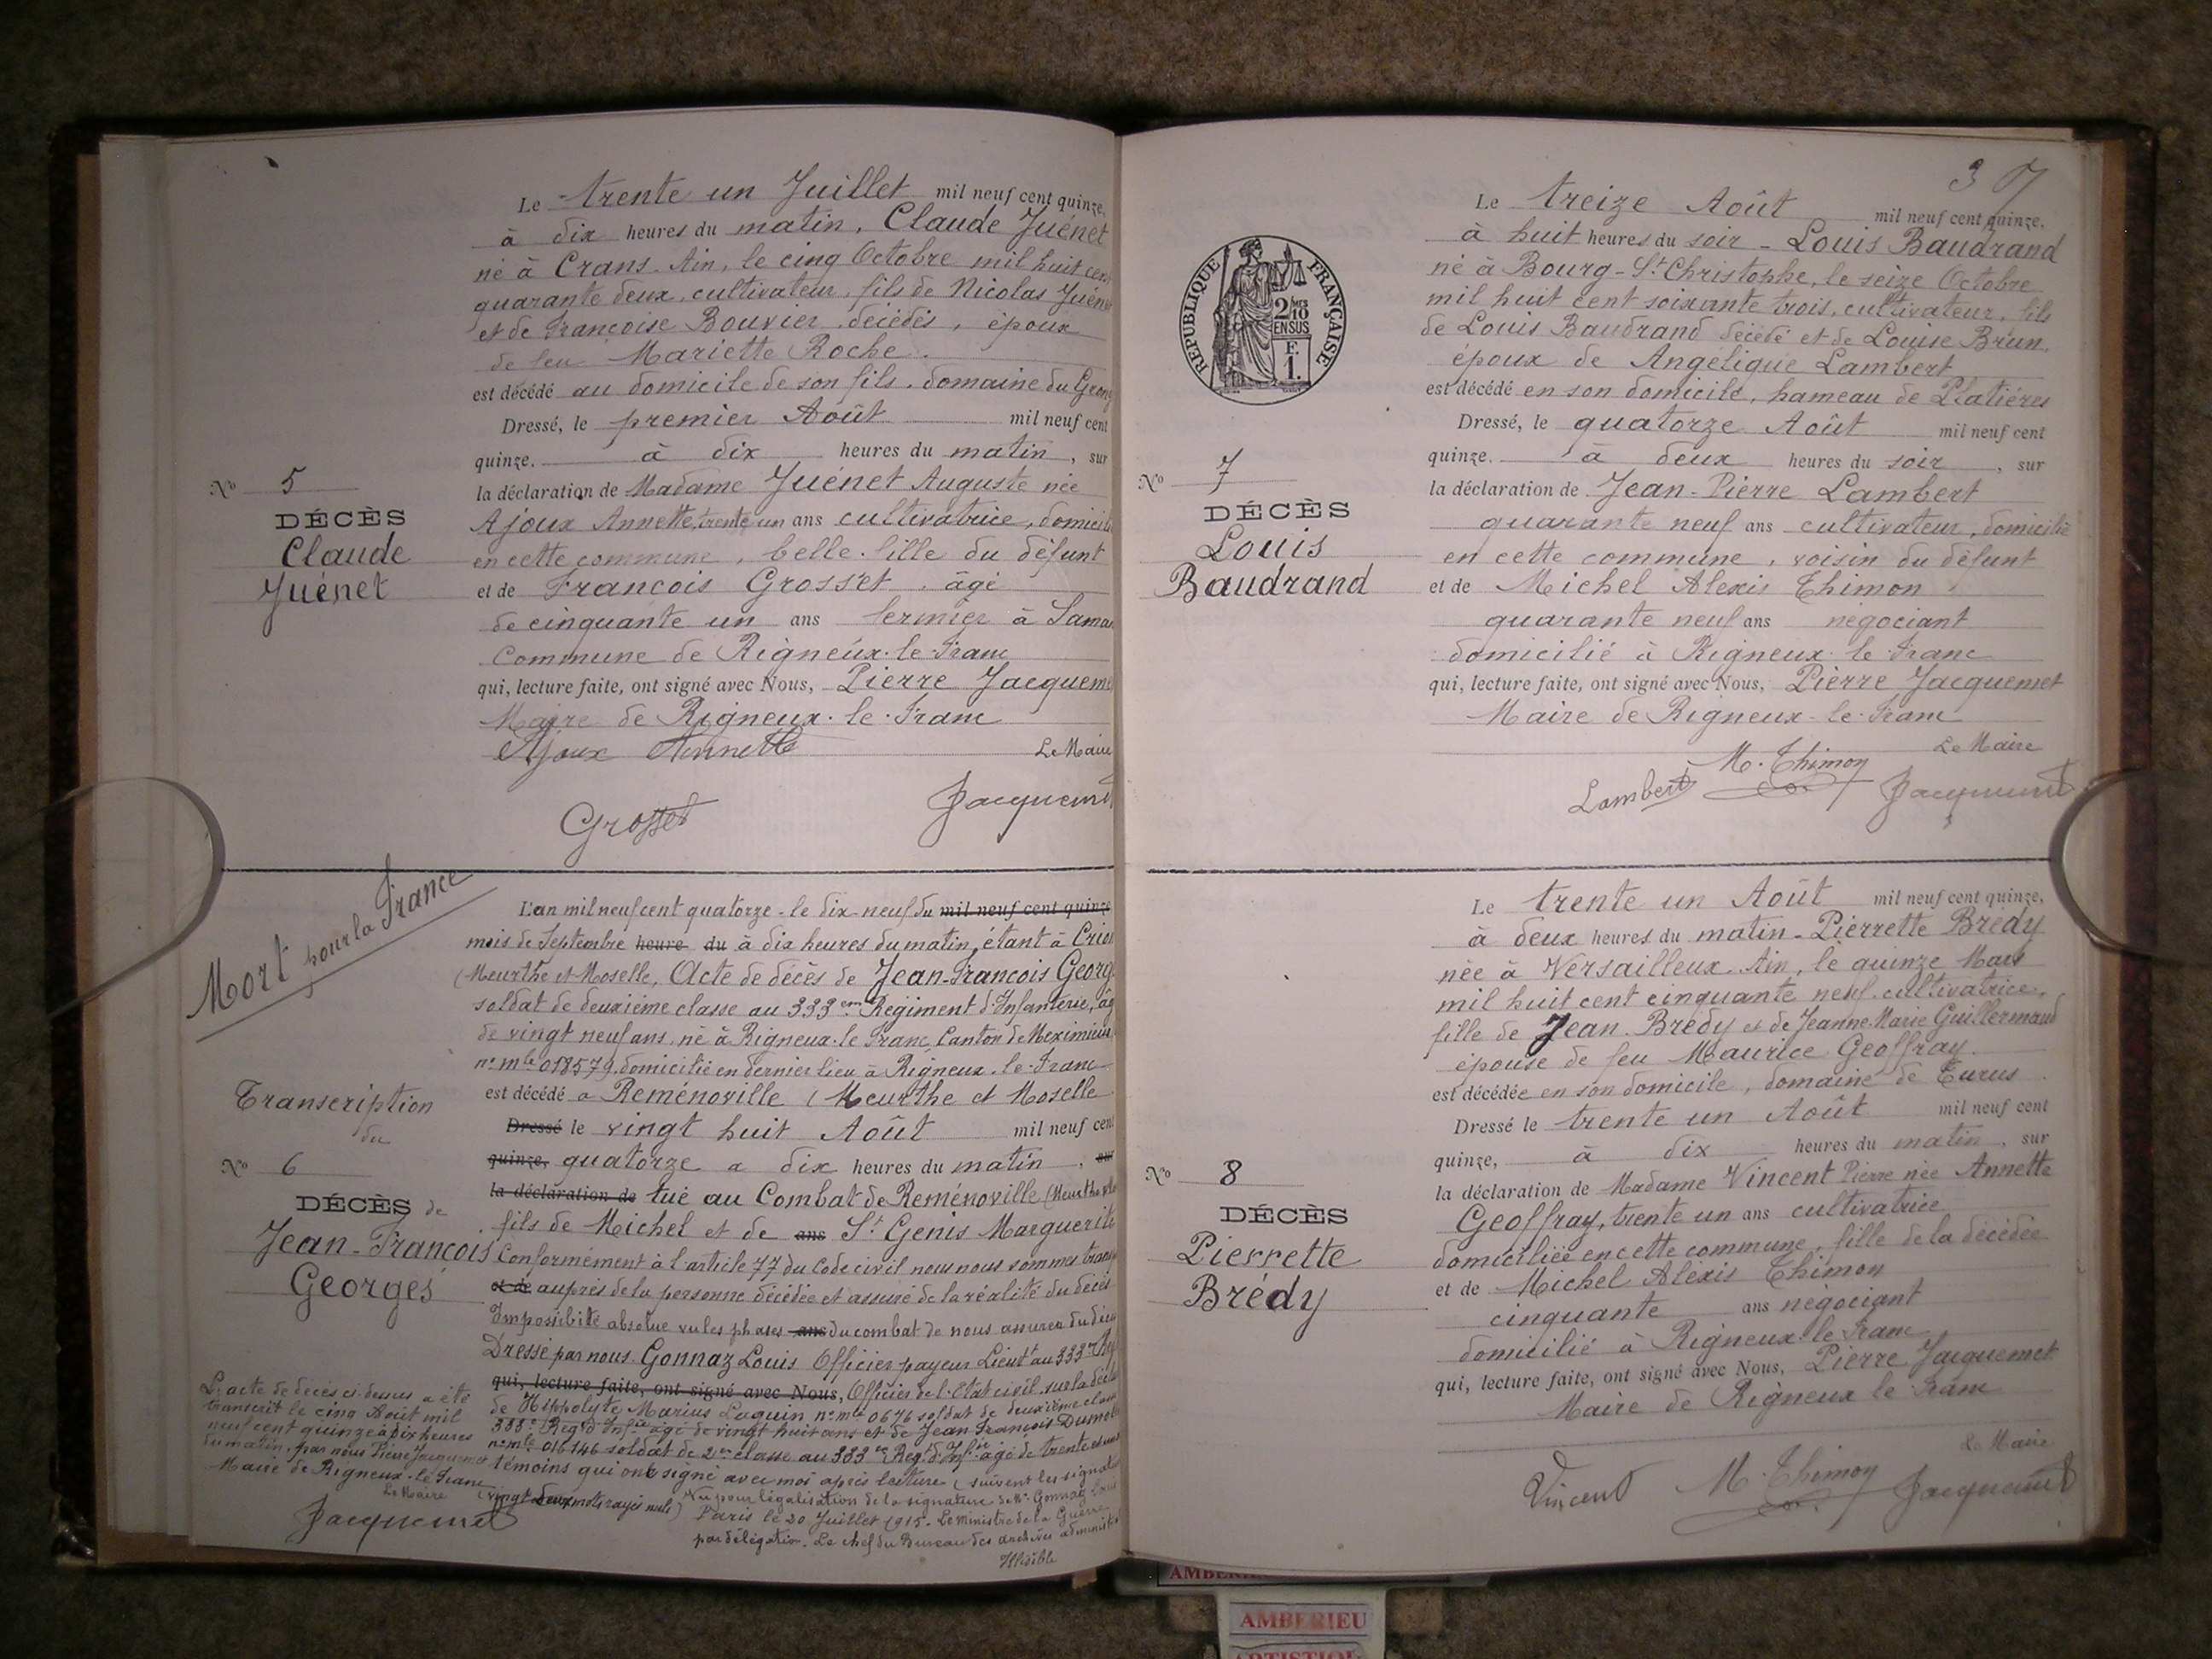 Le trente un Juillet mil neuf cent quinze,
à dix heures du matin, Claude Juénet
né à Crans. Ain, le cinq Octobre mil huit cent
quarante deux, cultivateur, fils de Nicolas
et de Francoise Bouvier, décédés, époux
de feu Mariette Roche.
est décédé au domicile de son fils, domaine du
Dressé, le premier Août mil neuf cent
quinze. à dix heures du matin, sur
la déclaration de Madame Juénet Auguste née
Ajoux Annette, trente un ans cultivatrice,
en cette commune, belle-fille du défunt
et de François Grosset, âgé
de cinquante un ans fermier à
Commune de Rigneux-le-Franc
qui, lecture faite, ont signé avec Nous, Pierre
Maire de Rigneux-le-Franc
Ajoux Annette Le Maire
Grosset
No 5
DÉCÈS
Claude
Juénet
Mort pour la France
L'an mil neuf cent quatorze - le dix-neuf du mil neuf cent quinze
mois de Septembre heure du à dix heures du matin, étant à
(Meurthe et Moselle, Acte de décès de Jean-François
soldat de deuxième classe au 333em Régiment d'Infanterie,
de vingt neuf ans, né à Rigneux-le-Franc, Canton de
no mle 018579, domicilié en dernier lieu à Rigneux-le-Franc
est décédé a Reménoville (Meurthe et Moselle
Dressé le vingt huit Août mil neuf cent
quinze, quatorze a dix heures du matin, sur
la déclaration de tué au Combat de Reménoville
fils de Michel et de ans St Genis Marguerite
Conformément à l'article 77 du Code civil nous nous sommes
et de auprès de la personne décédée et assuré de la réalité du décès
Impossibilité absolue vu les phases ans du combat de nous assurer du
Dressé par nous Gonnaz Louis Officier payeur Lieutt au 333e
qui, lecture faite, ont signé avec Nous, Officier de l'Etat civil, sur la
de Hippolyte Marius no mle 0676 soldat de deuxième classe
333e Reg. d'Infie âgé de vingt huit ans et de Jean François
no mle 016146 soldat de 2e classe au 333e Reg. d'Infie âgé de trente
témoins qui ont signé avec moi après lecture (suivent les
(vingt deux mots rayés nuls) Vu pour légalisation de la signature de Mr Gonnaz
Paris le 20 Juillet 1915. Le ministre de la Guerre
par délégation. Le chef du Bureau des archives
Illisible
Transcription
du
No 6
DÉCÈS de
Jean-François
Georges
L'acte de décès ci-dessus a été
transcrit le cinq Août mil
neuf cent quinze à dix heures
du matin, par nous Pierre Jacquemet
Maire de Rigneux-le-Franc
Le Maire
Jacquemet
37
Le treize Août mil neuf cent quinze.
à huit heures du soir - Louis Baudrand
né à Bourg-St Christophe, le seize Octobre
mil huit cent soixante trois, cultivateur, fils
de Louis Baudrand décédé et de Louise Brun,
époux de Angélique Lambert
est décédé en son domicile, hameau de Platières
Dressé, le quatorze Août mil neuf cent
quinze. à deux heures du soir, sur
la déclaration de Jean-Pierre Lambert
quarante neuf ans cultivateur, domicilié
en cette commune, voisin du défunt
et de Michel Alexis Thimon
quarante neuf ans négociant
domicilié à Rigneux-le-Franc
qui, lecture faite, ont signé avec Nous, Pierre Jacquemet
Maire de Rigneux-le-Franc
Le Maire
Lambert M. Thimon Jacquemet
REPUBLIQUE FRANÇAISE
2/10 MES
EN SUS
F.
1.
No 7
DÉCÈS
Louis
Baudrand
Le trente un Août mil neuf cent quinze,
à deux heures du matin - Pierrette Brédy
née à Versailleux. Ain, le quinze Mars
mil huit cent cinquante neuf, cultivatrice,
fille de Jean Brédy et de Jeanne Marie Guillermaud
épouse de feu Maurice Geoffray.
est décédée en son domicile, domaine de
Dressé le trente un Août mil neuf cent
quinze, à dix heures du matin, sur
la déclaration de Madame Vincent Pierre née Annette
Geoffray, trente un ans cultivatrice
domiciliée en cette commune, fille de la décédée
et de Michel Alexis Thimon
cinquante ans négociant
domicilié à Rigneux-le-Franc
qui, lecture faite, ont signé avec Nous, Pierre Jacquemet
Maire de Rigneux le Franc
Le Maire
Vincent M. Thimon Jacquemet
No 8
DÉCÈS
Pierrette
Brédy
AMBERIEU